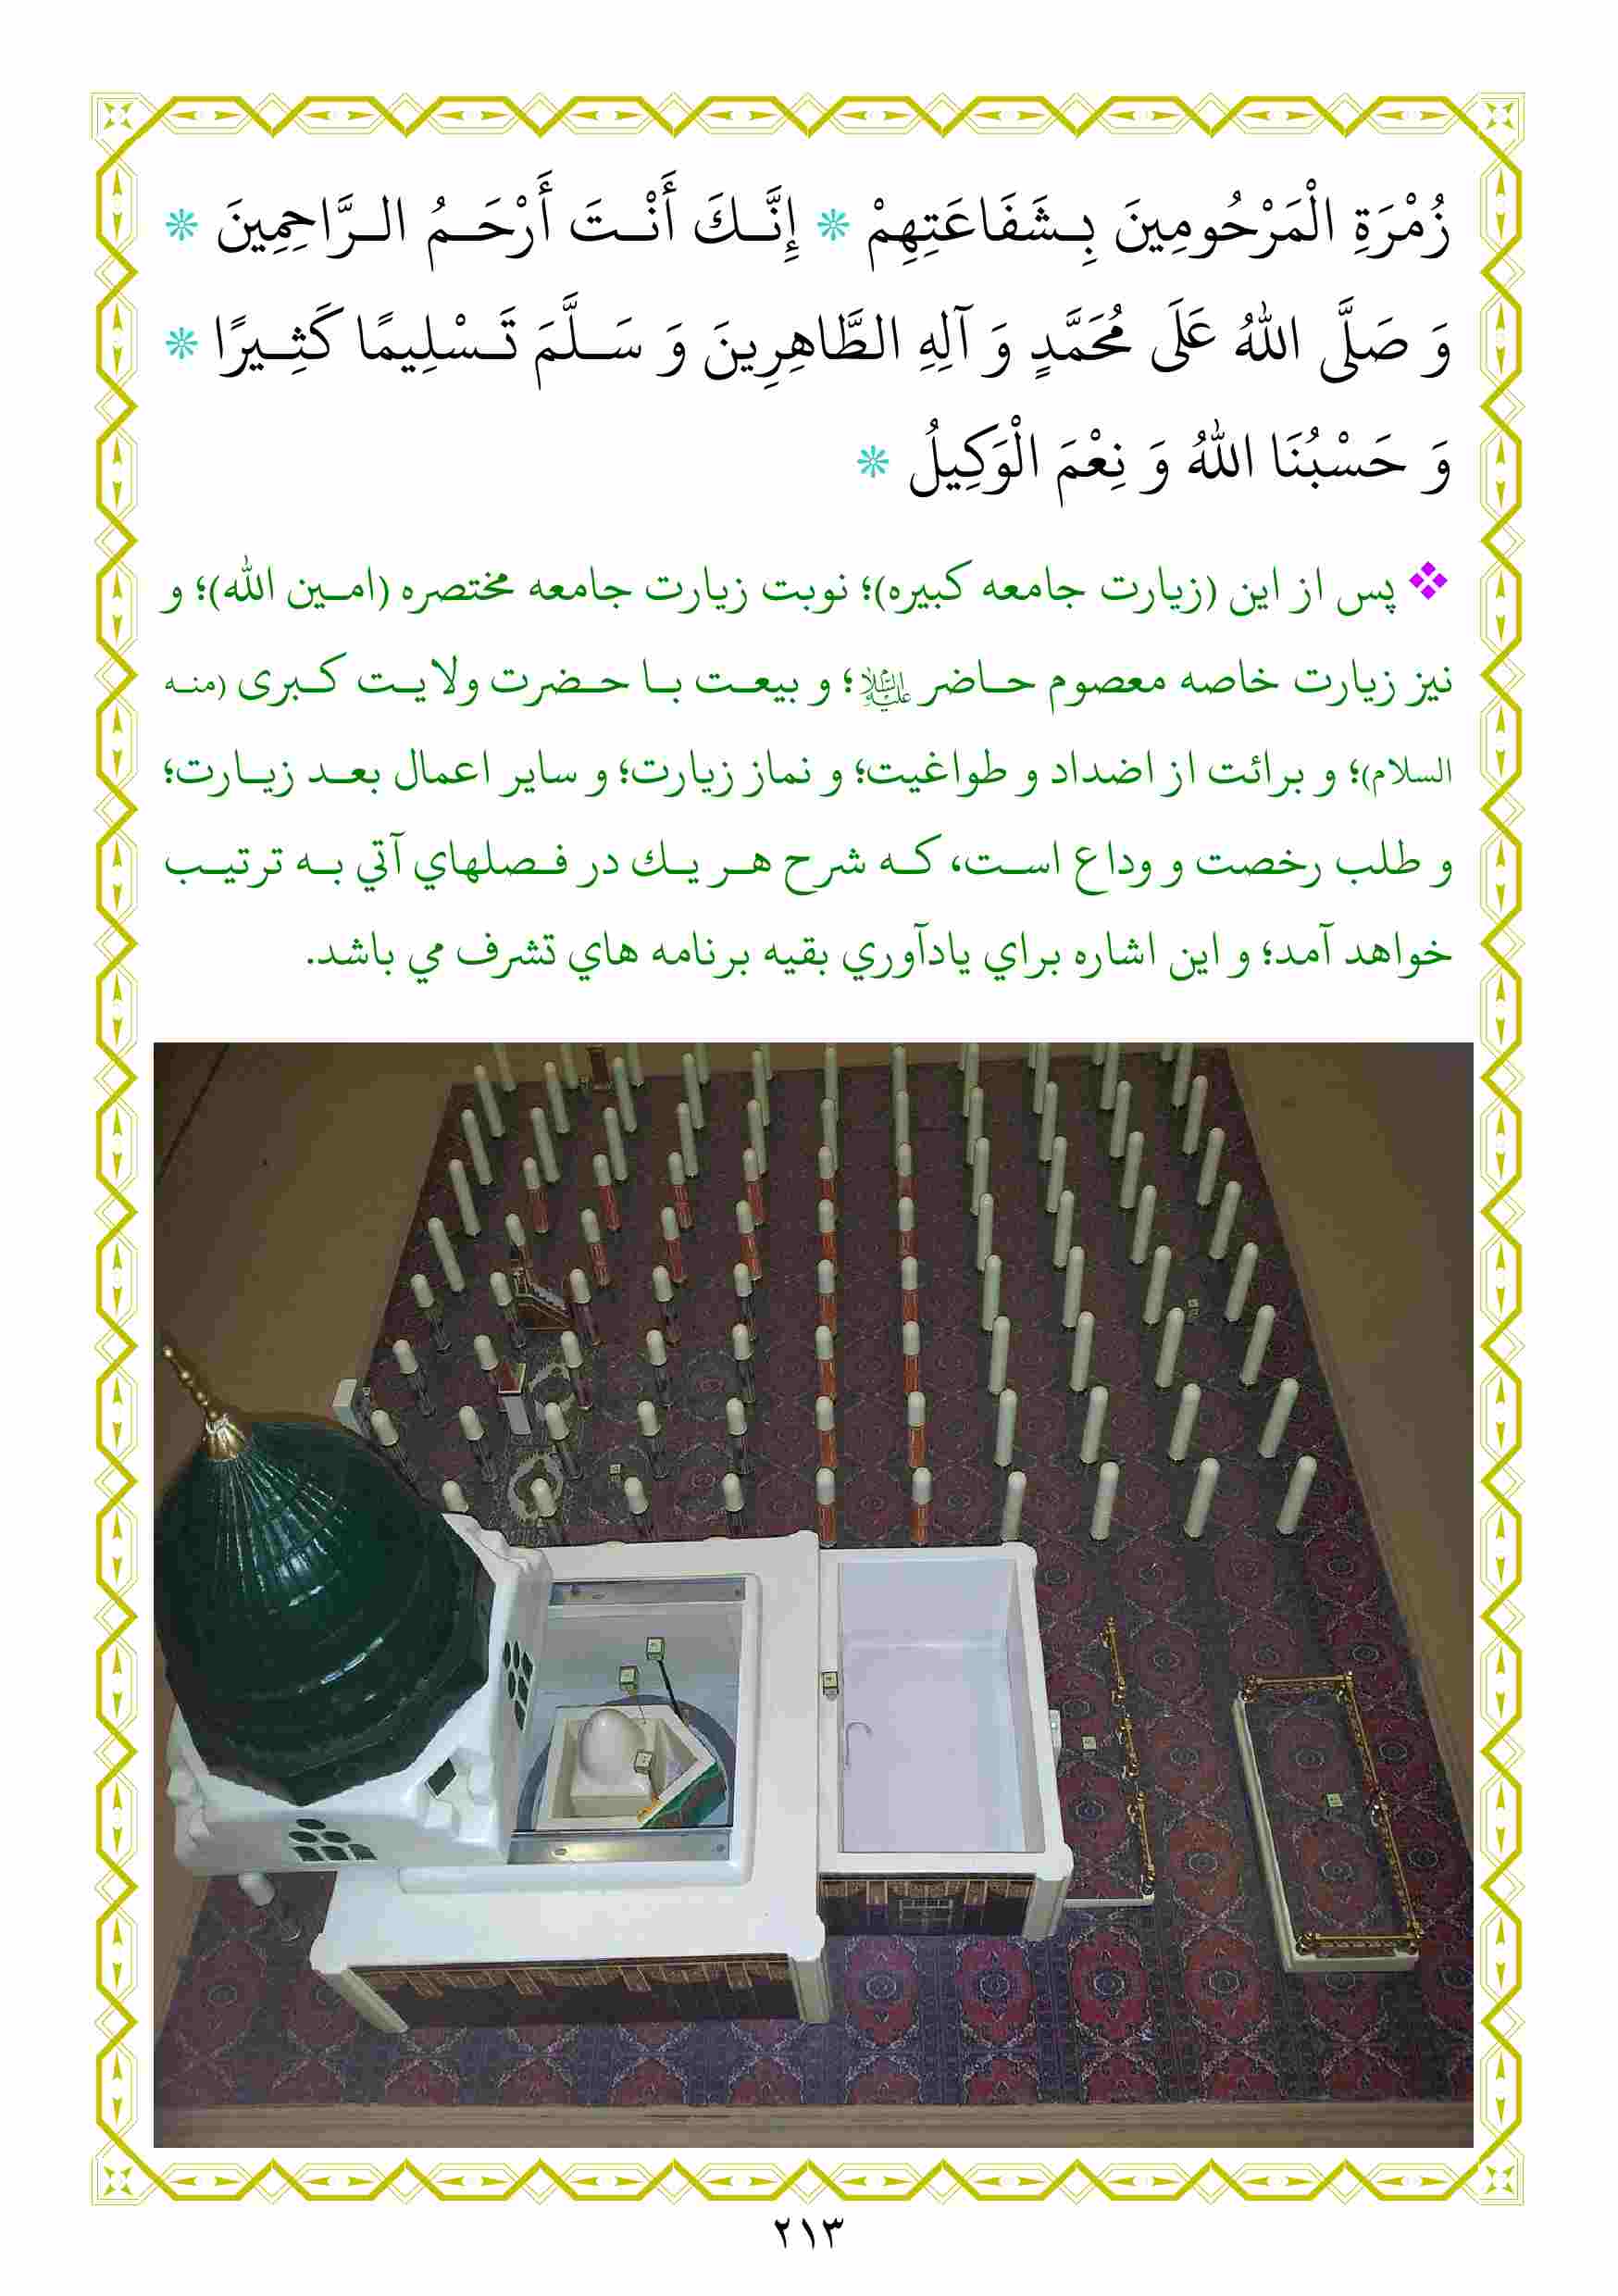 زُمْرَةِ الْمَرْحُومِينَ بِشَفَاعَتِهِمْ * إِنَّكَ أَنْتَ أَرْحَمُ الرَّاحِمِينَ *
وَ صَلَّى اللهُ عَلَى مُحَمَّدٍ وَ آلِهِ الطَّاهِرِينَ وَ سَلَّمَ تَسْلِيمًا كَثِيرًا *
وَ حَسْبُنَا اللهُ وَ نِعْمَ الْوَكِيلُ *
❖ پس از این (زیارت جامعه کبیره)؛ نوبت زیارت جامعه مختصره (امین الله)؛ و
نیز زیارت خاصه معصوم حاضر علیه السلام؛ و بیعت با حضرت ولایت کبری (منه
السلام)؛ و برائت از اضداد و طواغیت؛ و نماز زیارت؛ و سایر اعمال بعد زیارت؛
و طلب رخصت و وداع است، که شرح هر یك در فصلهاي آتي به ترتیب
خواهد آمد؛ و این اشاره براي یادآوري بقیه برنامه هاي تشرف مي باشد.
۲۱۳